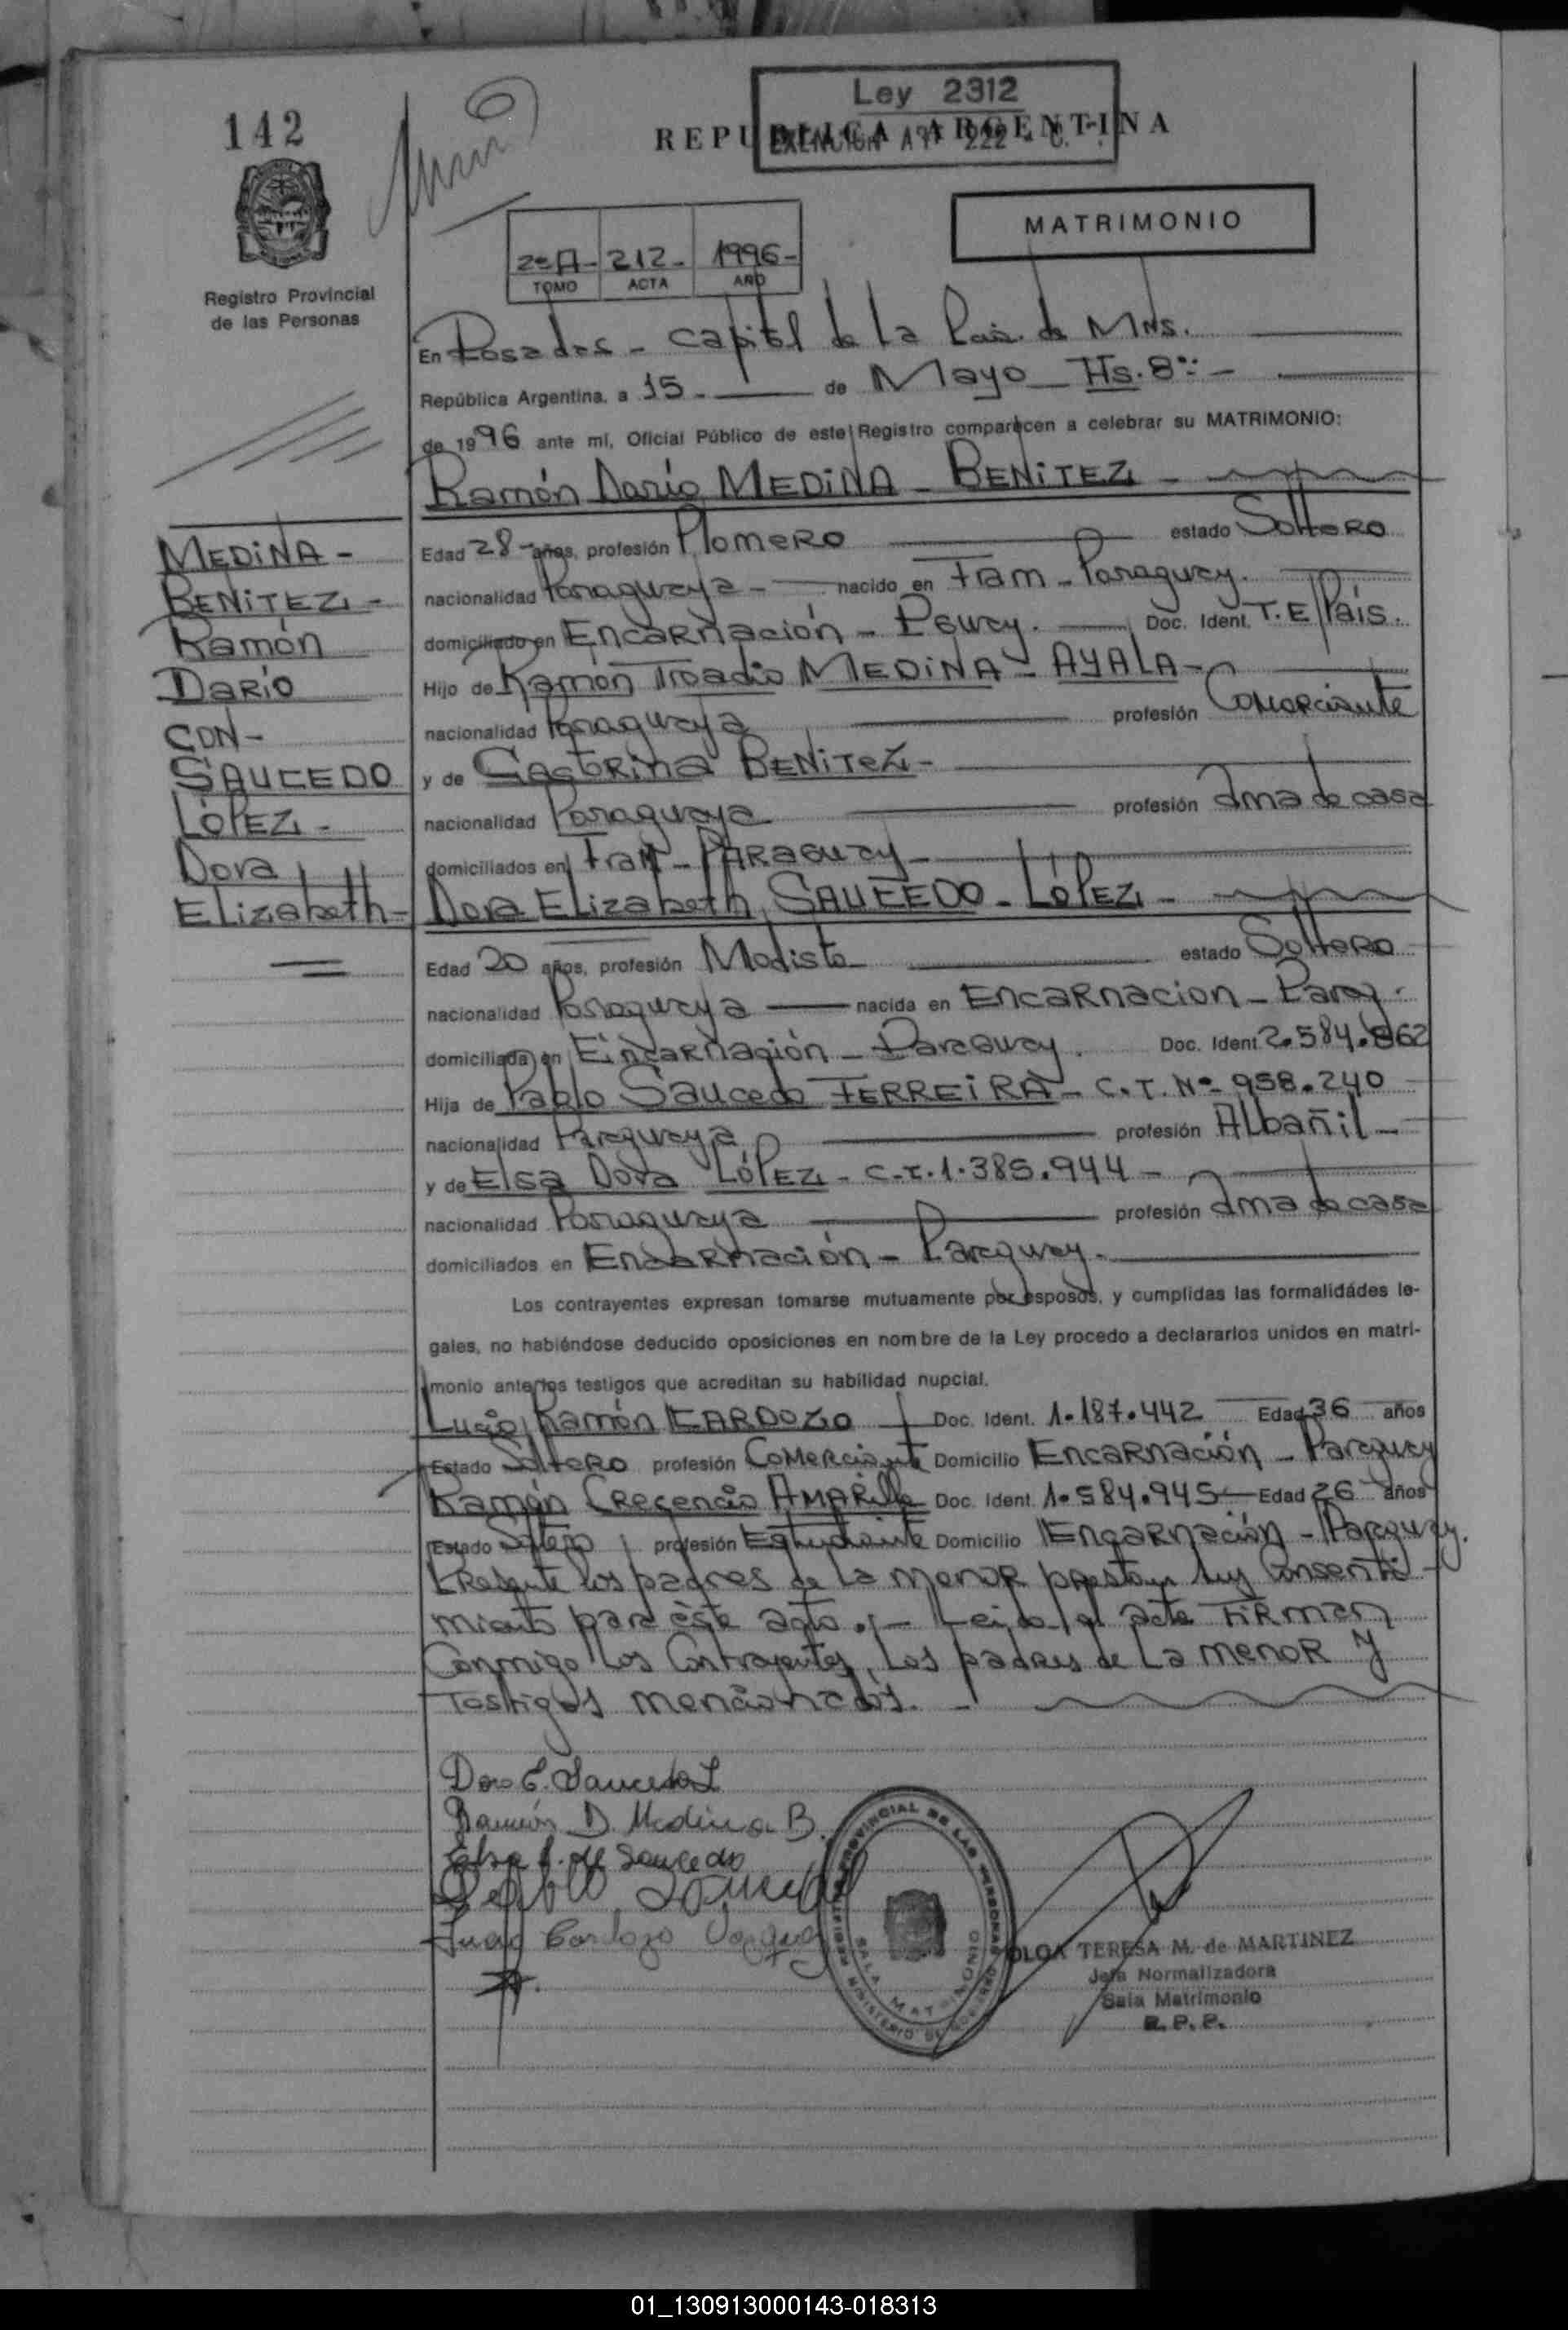 142
Ley 2312
REPUBLICA ARGENTINA
EXENCION Art 222
MATRIMONIO
2º A - 212 - 1996 -
TOMO ACTA AÑO
Registro Provincial
de las Personas
En Posadas - Capital de La Pcia. de Mnes.
República Argentina, a 15 - de Mayo - Hs. 8:: -
de 1996 ante mí, Oficial Público de este Registro comparecen a celebrar su MATRIMONIO:
Ramón Darío MEDINA - BENITEZ -
MEDINA -
BENITEZ -
Ramón
Darío
CON -
SAUCEDO
LÓPEZ -
Dora
Elizabeth -
Edad 28 - años, profesión Plomero estado Soltero
nacionalidad Paraguaya - nacido en Fram - Paraguay.
domiciliado en Encarnación - Pguay. Doc. Ident. T.E País.
Hijo de Ramón Troadio MEDINA - AYALA -
nacionalidad Paraguaya profesión Comerciante
y de BENITEZ -
nacionalidad Paraguaya profesión Ama de casa
domiciliados en Fram - PARAGUAY -
Dora Elizabeth SAUCEDO - LÓPEZ -
Edad 20 años, profesión Modista estado Soltero
nacionalidad Paraguaya nacida en Encarnacion - Parag.
domiciliada en Encarnación - Paraguay. Doc. Ident 2.584.862
Hija de Pablo Saucedo FERREIRA - C.T. Nº 958.240
nacionalidad Paraguaya profesión Albañil -
y de Elsa Dora LÓPEZ - C.I. 1.385.944 -
nacionalidad Paraguaya profesión Ama de casa
domiciliados en Encarnación - Paraguay.
Los contrayentes expresan tomarse mutuamente por esposos, y cumplidas las formalidádes le-
gales, no habiéndose deducido oposiciones en nombre de la Ley procedo a declararlos unidos en matri-
monio ante los testigos que acreditan su habilidad nupcial.
Lucio Ramón CARDOZO Doc. Ident. 1.187.442 Edad 36 años
Estado Soltero profesión Comerciante Domicilio Encarnación - Paraguay
Ramón Crecencio AMARILLA Doc. Ident. 1.584.945 Edad 26 años
Estado Soltero profesión Estudiante Domicilio Encarnación - Paraguay.
Presente los padres de La menor prestan su Consenti-
miento para éste acto. - Leída el acta FIRMAN
Conmigo los Contrayentes, Los padres de La menor y
Testigos mencionados. -
Dora E. Saucedo L
Ramón D. Medina B.
Elsa L. de Saucedo
Pablo Saucedo
Cardozo
REGISTRO PROVINCIAL DE LAS PERSONAS
SALA MATRIMONIO
MINISTERIO DE GOBIERNO
OLGA TERESA M. de MARTINEZ
Jefa Normalizadora
Sala Matrimonio
R. P. P.
01_130913000143-018313